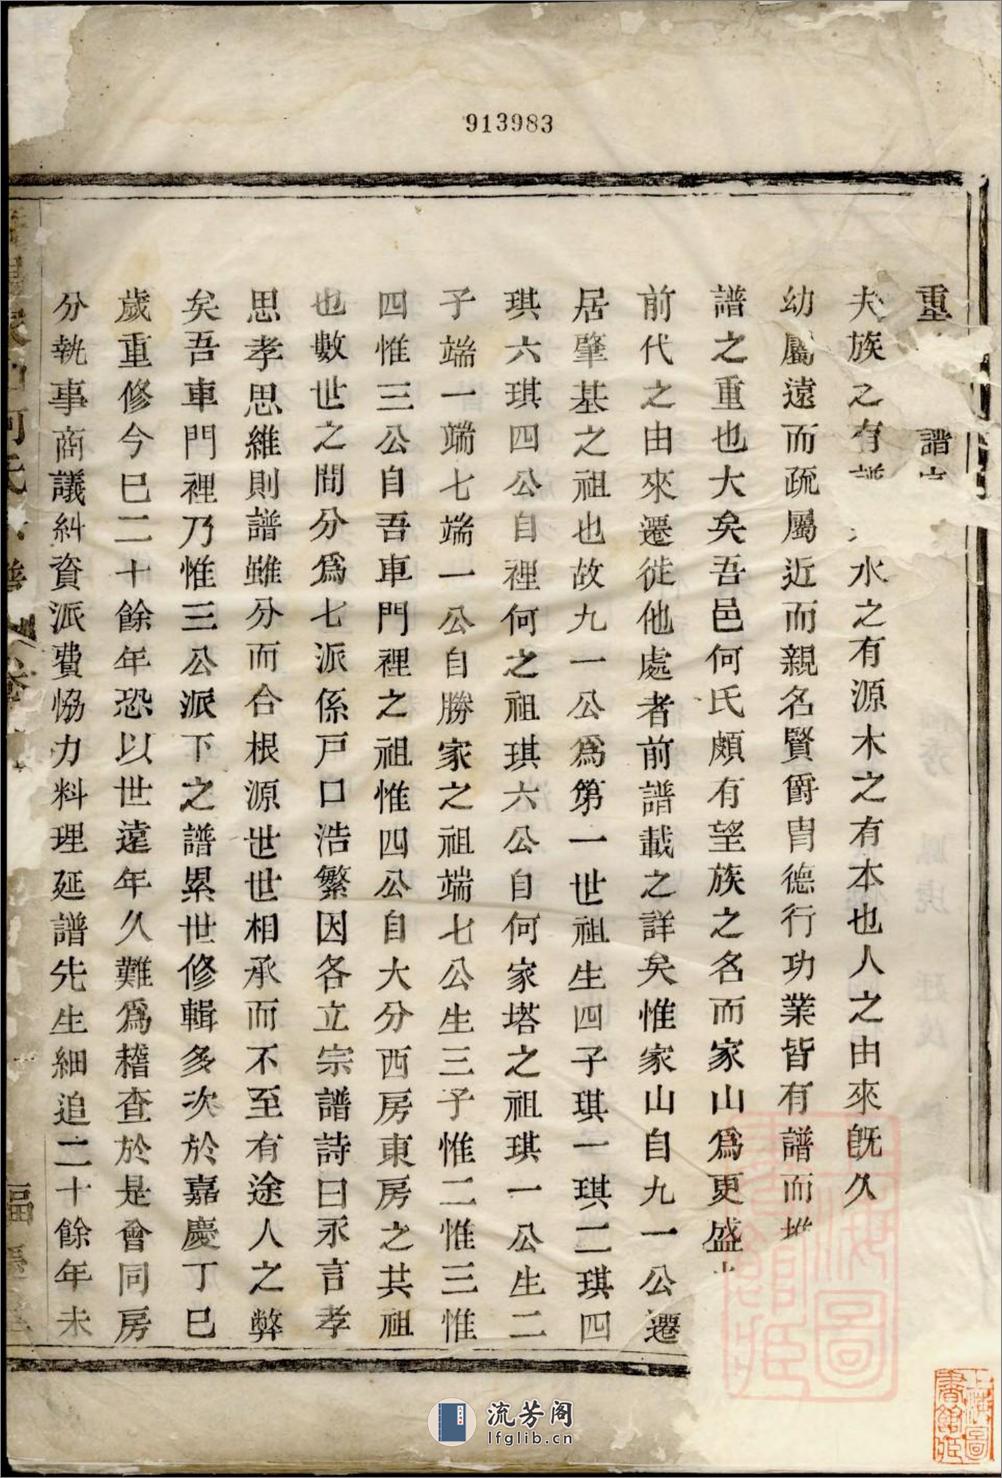 913983
重 譜
夫族之有 水之有源木之有本也人之由來旣久
幼屬遠而疏屬近而親名賢爵冑德行功業皆有譜而
譜之重也大矣吾邑何氏頗有望族之名而家山爲更盛
前代之由來遷徙他處者前譜載之詳矣惟家山自九一公遷
居肇基之祖也故九一公爲第一世祖生四子琪一琪二琪四
琪六琪四公自裡何之祖琪六公自何家塔之祖琪一公生二
子端一端七端一公自勝家之祖端七公生三子惟二惟三惟
四惟三公自吾車門裡之祖惟四公自大分西房東房之共祖
也數世之間分爲七派係戸口浩繁因各立宗譜詩曰永言孝
思孝思維則譜雖分而合根源世世相承而不至有途人之弊
矣吾車門裡乃惟三公派下之譜累世修輯多次於嘉慶丁巳
歲重修今巳二十餘年恐以世遠年久難爲稽查於是會同房
分執事商議糾資派費恊力料理延譜先生細追二十餘年未
何氏
流芳阁
lfglib.cn